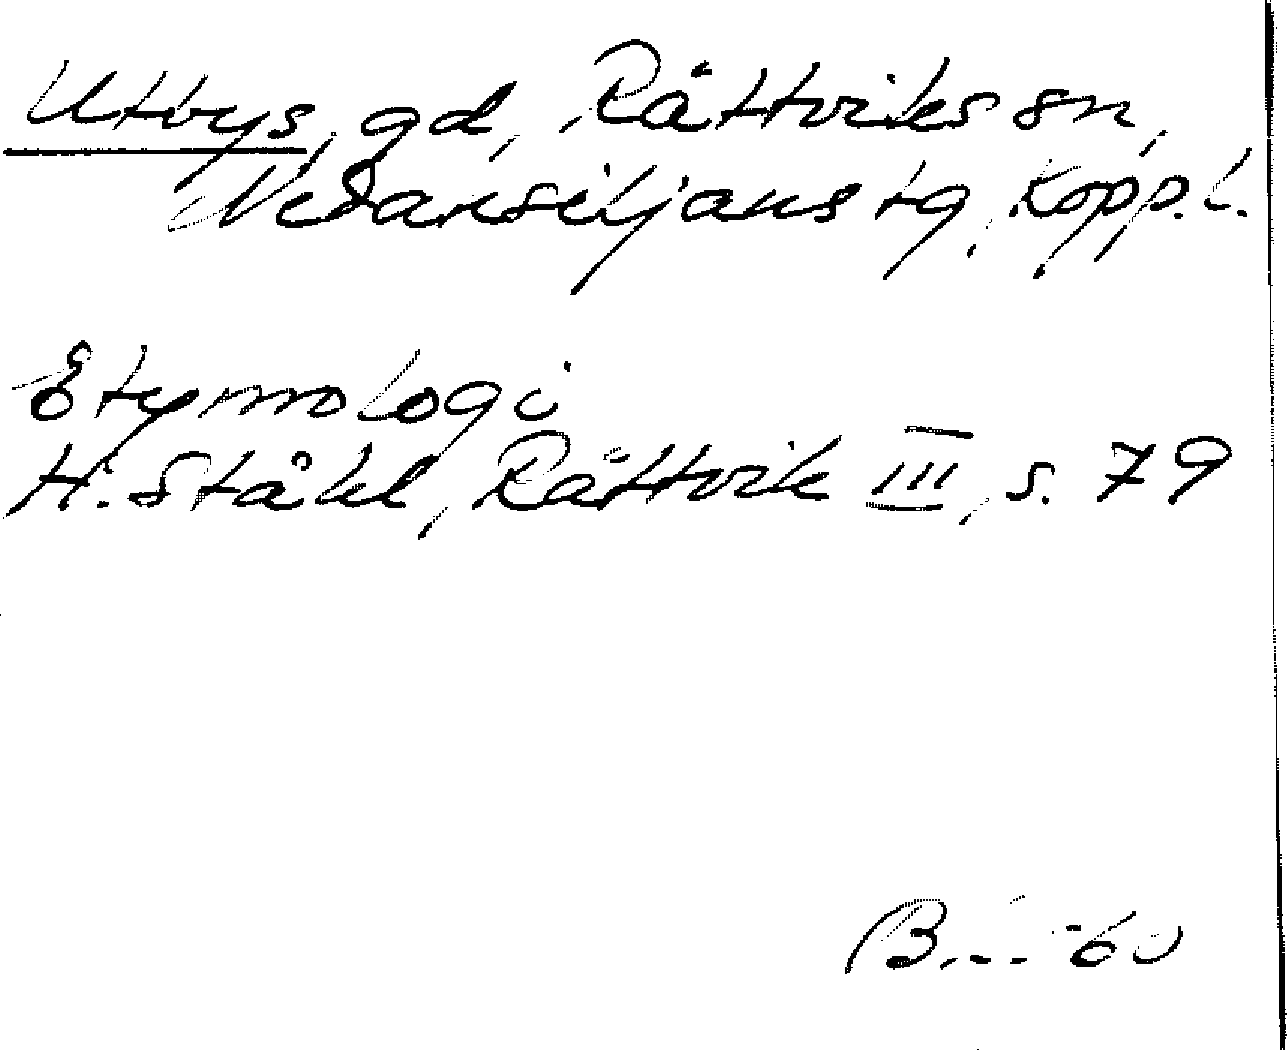 Utbys, gd, Rättviks sn,
Nedansiljans tg, Kopp. l.
Etymologi
H. Ståhl, Rättvik III, s. 79